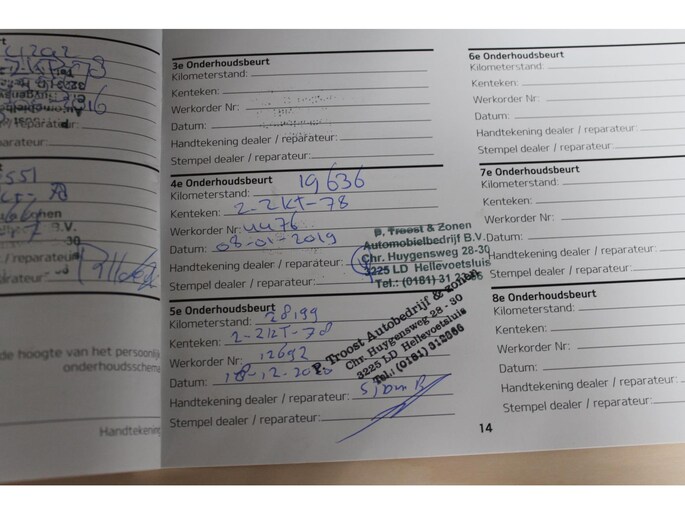 3e Onderhoudsbeurt
Kilometerstand:
Kenteken:
Werkorder Nr:
Datum:
Handtekening dealer / reparateur:
Stempel dealer / reparateur:
4e Onderhoudsbeurt
Kilometerstand: 19636
Kenteken: 2-ZKT-78
Werkorder Nr: 4476
Datum: 08-01-2019
Handtekening dealer / reparateur:
Stempel dealer / reparateur:
P. Troost & Zonen
Automobielbedrijf B.V.
Chr. Huygensweg 28-30
3225 LD Hellevoetsluis
Tel.: (0181) 31
5e Onderhoudsbeurt
Kilometerstand: 28199
Kenteken: 2-ZKT-78
Werkorder Nr: 12692
Datum:
Handtekening dealer / reparateur:
Stempel dealer / reparateur:
P. Troost Autobedrijf & zonen
Chr. Huygensweg 28 - 30
3225 LD Hellevoetsluis
Tel.: (0181)
14
6e Onderhoudsbeurt
Kilometerstand:
Kenteken:
Werkorder Nr:
Datum:
Handtekening dealer / reparateur:
Stempel dealer / reparateur:
7e Onderhoudsbeurt
Kilometerstand:
Kenteken:
Werkorder Nr:
Datum:
Handtekening dealer / reparateur:
Stempel dealer / reparateur:
8e Onderhoudsbeurt
Kilometerstand:
Kenteken:
Werkorder Nr:
Datum:
Handtekening dealer / reparateur:
Stempel dealer / reparateur:
de hoogte van het persoonlij
onderhoudsschema
Handtekening